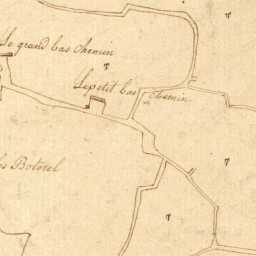 Le grand bas chemin
Le petit bas chemin
Botorel